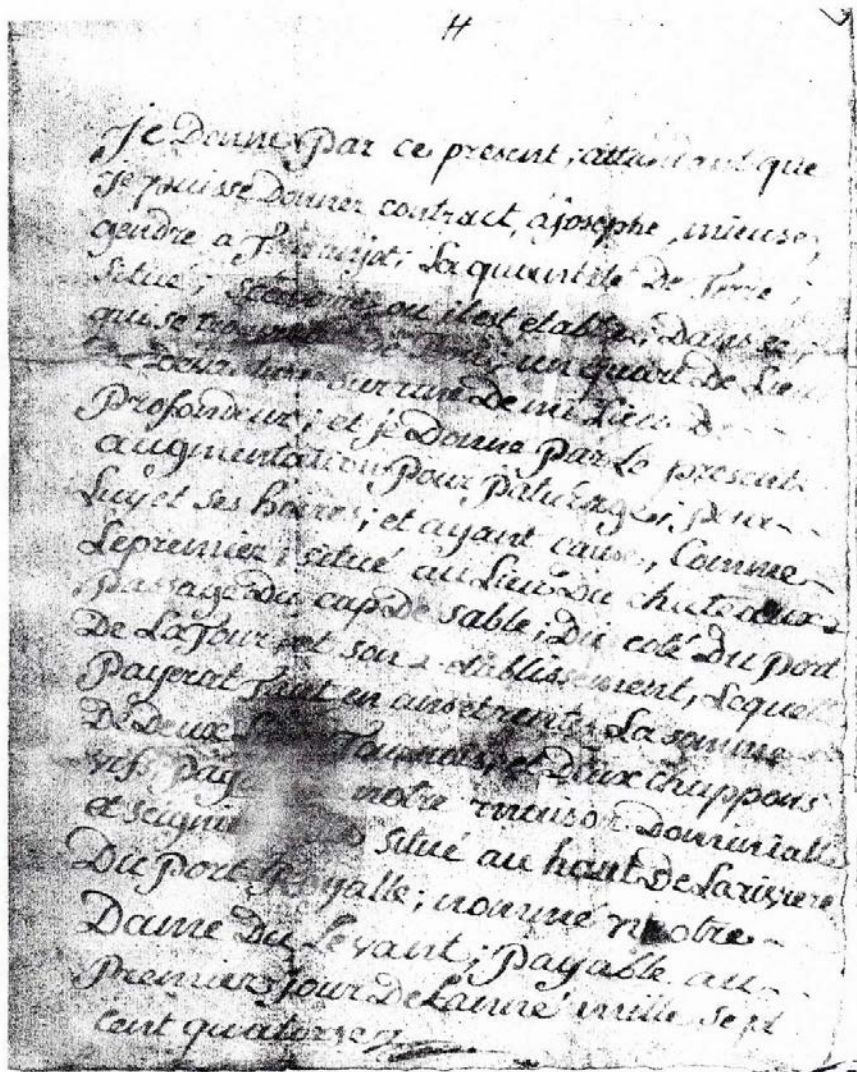 H
Je Donne Par ce present, attandant que
Je puisse Donner contract, a josephe, mieuse,
gendre a ; La quantité De Terre ;
situé ; ou il est etablis ; Dans ce ;
qui se un quart De Lieu
sur une De mi Lieu D
Profondeur ; et je Donne Par Le present
augmentation Pour Paturages ; pour
Luy et ses hoires ; et ayant cause, Comme
Le premier ; situé au Lieu Du chateaux
Passage Du cap De sable ; Du coté Du port
De La Tour et son etablissement, Lequel
Payerat tout en cens et rente La somme
De Deux Tournois, et Deux chappons
vifs, notre maison Dominialle
et situé au haut De La riviere
Du Port Royalle ; nommé Nostre
Dame Du Levant ; Payable au
Premier jour De Lanné mille sept
cent quatorze